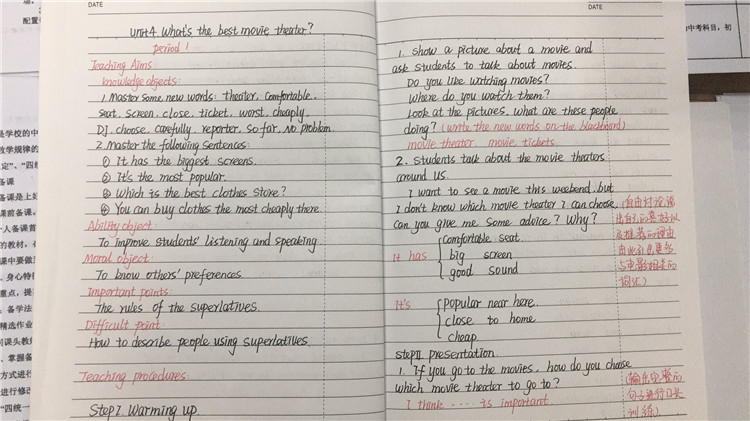 DATE
Unit4 What's the best movie theater?
period 1
Teaching Aims
knowledge objects:
1. Master some new words: theater, comfortable,
seat, screen, close, ticket, worst, cheaply,
DJ, choose, carefully, reporter, so far, no problem
2. Master the following sentences:
① It has the biggest screens.
② It's the most popular.
③ Which is the best clothes store?
④ You can buy clothes the most cheaply there.
Ability object:
To improve students' listening and speaking.
Moral object:
To know others' preferences
Important points:
The rules of the superlatives.
Difficult point:
How to describe people using superlatives.
Teaching procedures:
Step I Warming up.
DATE
1. Show a picture about a movie and
ask students to talk about movies.
Do you like watching movies?
Where do you watch them?
Look at the pictures, what are these people
doing? (write the new words on the blackboard)
movie theater movie tickets
2. Students talk about the movie theaters
around us.
I want to see a movie this weekend, but
I don't know which movie theater I can choose.
Can you give me some advice? Why?
(自由讨论,说
出自己的喜好以
及推荐的理由
由此引出更多
与电影相关的
词汇)
It has
comfortable seat.
big screen
good sound
It's
popular near here.
close to home
cheap
Step II presentation
1. If you go to the movies, how do you choose
which movie theater to go to?
I think ····· is important
(输出完整的
句子进行口头
训练)
配置
是学校的中
教学规律的
定”、“四统
备课
备课是上好
课前备课。
一人备课首
的教材,
课中要做
、身心特
重点,提
、备学法
精选作业
同课头教
、掌握备
方式进行
进行修改
“四统一
中考科目,初